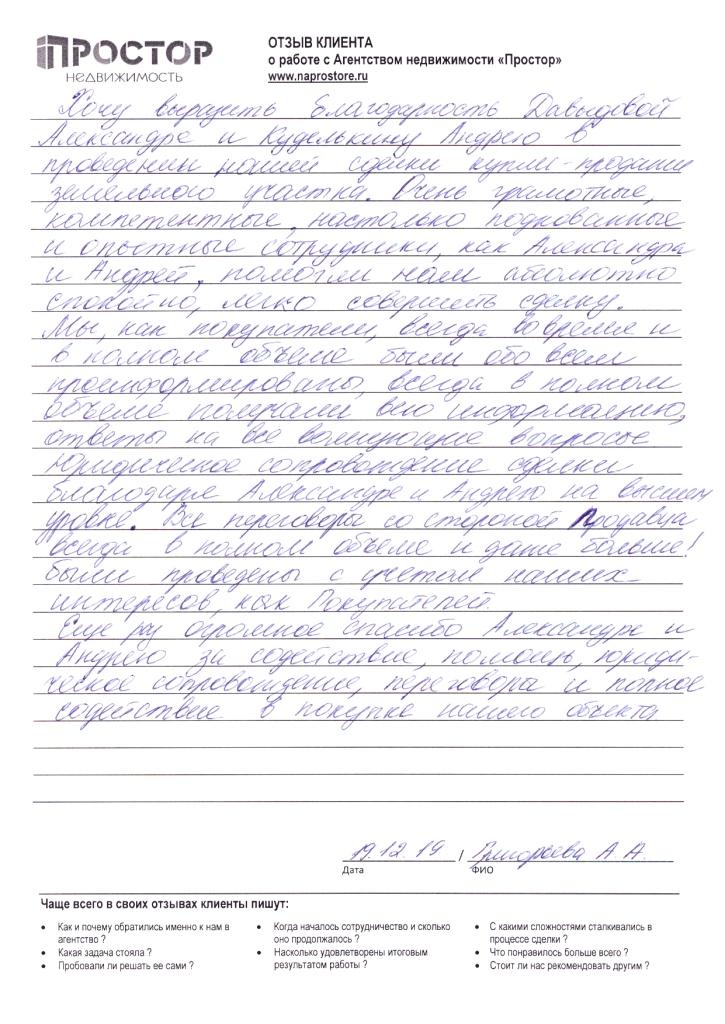 ПРОСТОР
НЕДВИЖИМОСТЬ
ОТЗЫВ КЛИЕНТА
о работе с Агентством недвижимости «Простор»
www.naprostore.ru
Хочу выразить благодарность Давыдовой
Александре и Куделькину Андрею в
проведении нашей сделки купли-продажи
земельного участка. Очень грамотные,
компетентные, настолько подкованные
и опытные сотрудники, как Александра
и Андрей, помогли нам абсолютно
спокойно, легко совершить сделку.
Мы, как покупатели, всегда вовремя и
в полном объеме были обо всем
проинформированы, всегда в полном
объеме получали всю информацию,
ответы на все волнующие вопросы
Юридическое сопровождение сделки
благодаря Александре и Андрею на высшем
уровне. Все переговоры со стороной Продавца
всегда в полном объеме и даже больше!
были проведены с учетом наших
интересов, как Покупателей.
Еще раз огромное спасибо Александре и
Андрею за содействие, помощь, юриди-
ческое сопровождение, переговоры и полное
содействие в покупке нашего объекта
19.12.19 / Григорьева А. А.
Дата ФИО
Чаще всего в своих отзывах клиенты пишут:
• Как и почему обратились именно к нам в
агентство ?
• Какая задача стояла ?
• Пробовали ли решать ее сами ?
• Когда началось сотрудничество и сколько
оно продолжалось ?
• Насколько удовлетворены итоговым
результатом работы ?
• С какими сложностями сталкивались в
процессе сделки ?
• Что понравилось больше всего ?
• Стоит ли нас рекомендовать другим ?